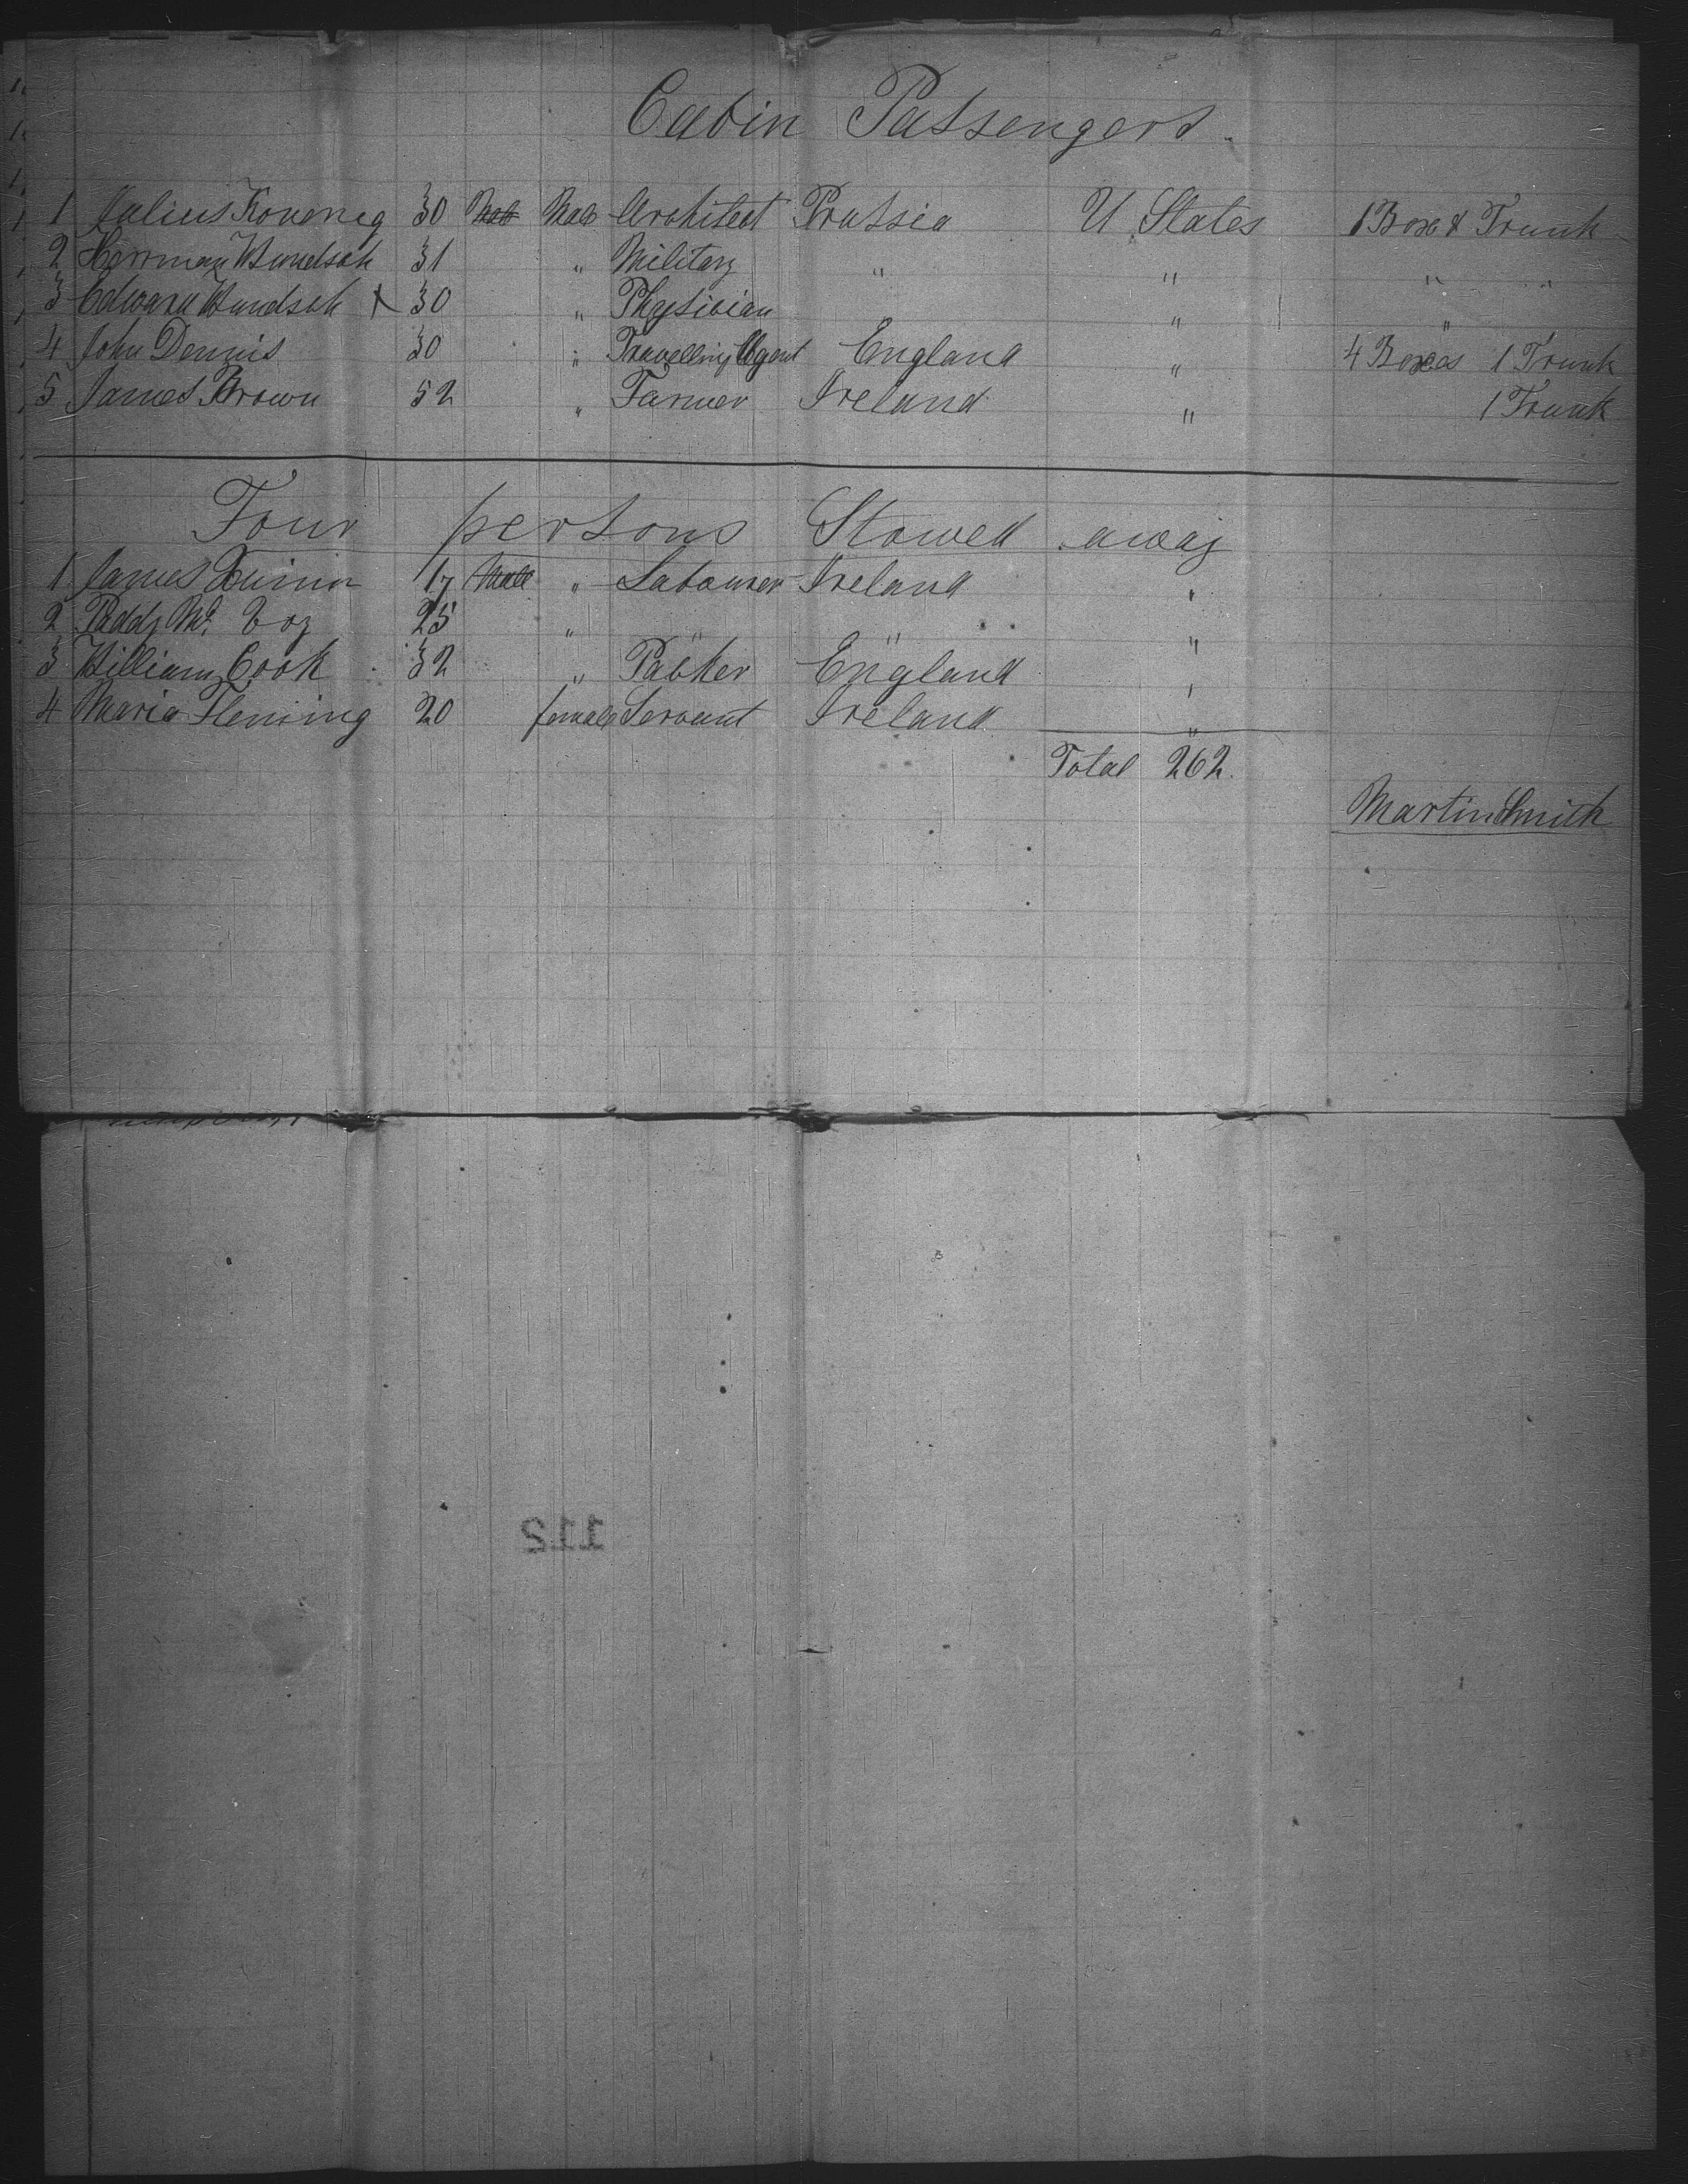 Cabin Passengers.
1 Julius Kovereg 30 Male Male Architect Prussia U States 1 Box & Trunk
2 Herrman Wundsch 31 " Military " " " "
3 Edward Wundsch x 30 " Physician " " "
4 John Dennis 30 " Travelling Agent England " 4 Boxes 1 Trunk
5 James Brown 52 " Farmer Ireland " 1 Trunk
Four persons Stowed away
1 James 17 Male " Labourer Ireland "
2 Paddy Mc Coy 25 " " " "
3 William Cook 32 " Packer England "
4 Maria Fleming 20 female Servant Ireland "
Total 262.
Martin Smith
112